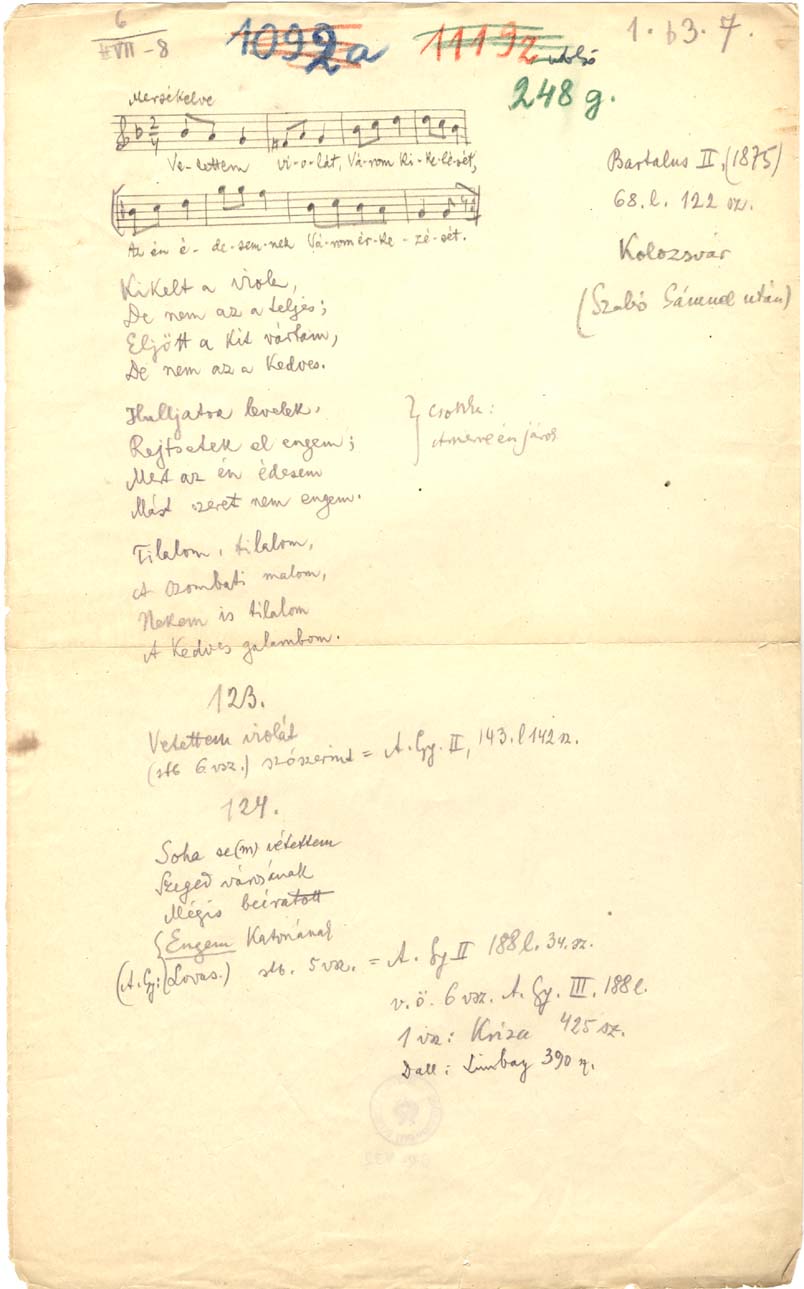 6
VII-8
1092a
11192
utolsó
1. b3. 7.
248 g.
Mérsékelve
Ve-tettem vi-o-lát, Vá-rom ki-ke-lését,
Az én é-de-sem-nek Vá-rom ér-ke-zé-sét.
Bartalus II. (1875)
68. l. 122 sz.
Kolozsvár
(Szabó Sámuel után)
Kikelt a viola,
De nem az a teljes;
Eljött a kit vártam,
De nem az a kedves.
Hulljatra levelek,
Rejtsetek el engem;
Mert az én édesem
Mást szeret nem engem.
Amerre én járok
Tilalom, tilalom,
A szombati malom,
Nekem is tilalom
A kedves galambom.
123.
Vetettem violát
(stb 6 vsz.) szószerint = A. Gy. II, 143. l 142 sz.
124.
Soha se(m) vétettem
Szeged városának
Mégis beiratott
Engem Katonának
(A. Gy: Lovas.) stb. 5 vsz. = A. Gy II 188 l. 34. sz.
v. ö. 6 vsz. A. Gy. III. 188 l.
1 vsz: Kriza 425 sz.
Dall: Limbay 390 sz.